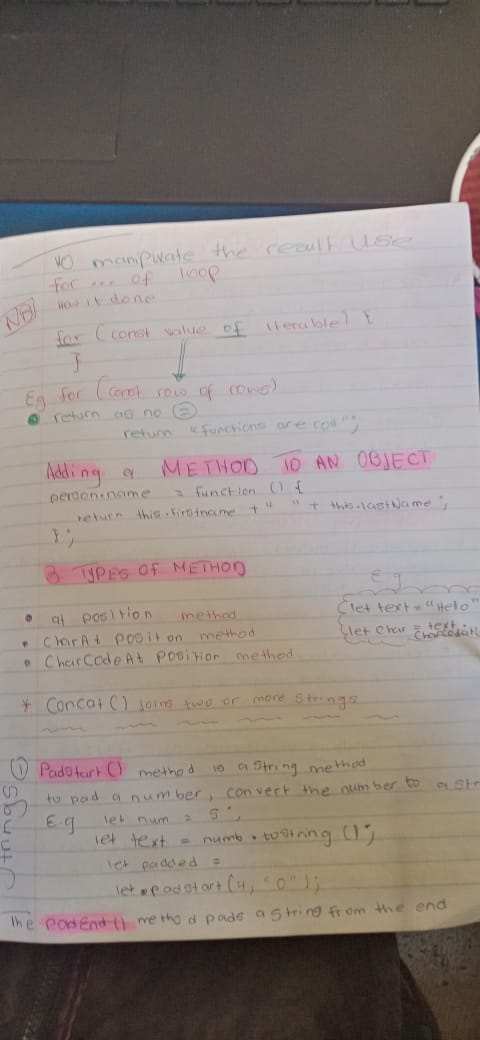 to manipulate the result use
for ... of loop
NB
How it done
for (const value of iterable) {
}
Eg for (const row of rows)
return as no =
return "functions are cool";
Adding a METHOD TO AN OBJECT
person.name = function () {
return this.firstname + " " + this.lastName;
};
3 TYPES OF METHOD
Eg
at position method
let text = "Hello"
CharAt position method
let char = text.
CharCodeAt position method
* Concat() joins two or more strings
① Padstart() method is a string method
to pad a number, convert the number to a str
E.g let num = 5;
let text = numb.toString();
let padded =
let.padstart(4, "0");
The padEnd() method pads a string from the end